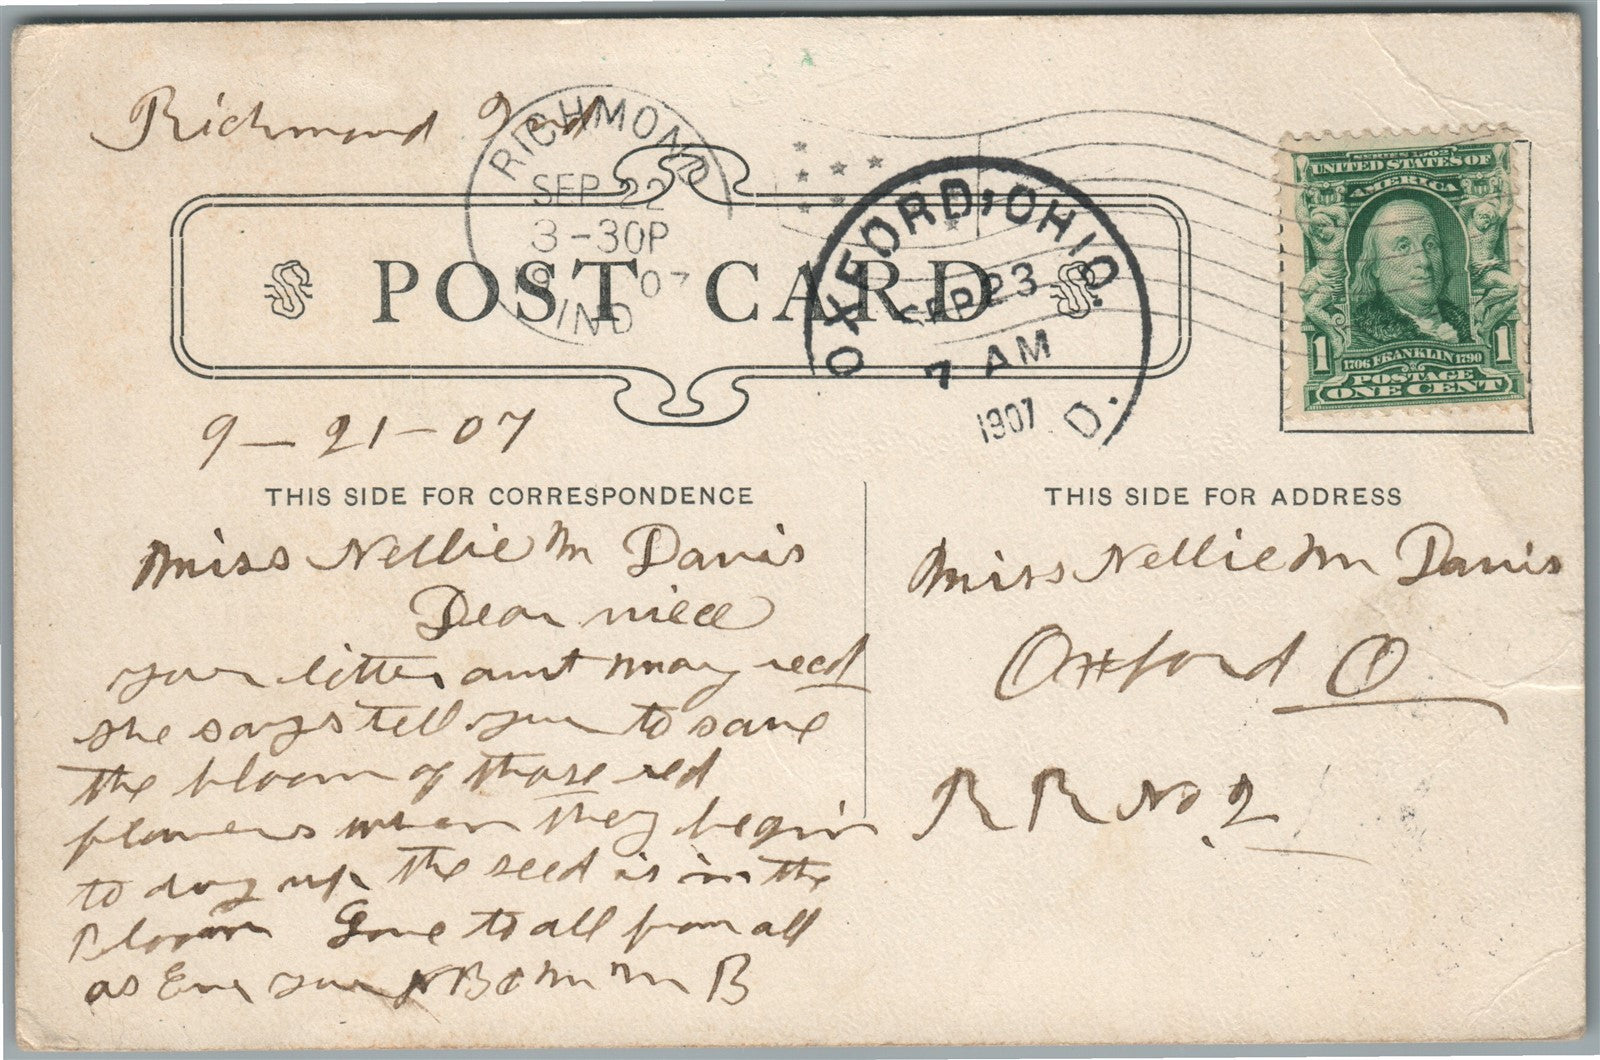 Richmond Ind
RICHMOND
SEP 22
3-30P
07
IND
OXFORD, OHIO.
SEP 23
7 AM
1907
D.
SERIES 1902
UNITED STATES OF
AMERICA
1 1706 FRANKLIN 1790 1
POSTAGE
ONE CENT
POST CARD
9-21-07
THIS SIDE FOR CORRESPONDENCE
Miss Nellie M Davis
Dear niece
your letter aunt may recd
she says tell you to save
the bloom of those red
flowers when they begin
to dry up the seed is in the
Bloom Love to all from all
as Ever your
B & M M B
THIS SIDE FOR ADDRESS
Miss Nellie M Davis
Oxford O
R R No. 2